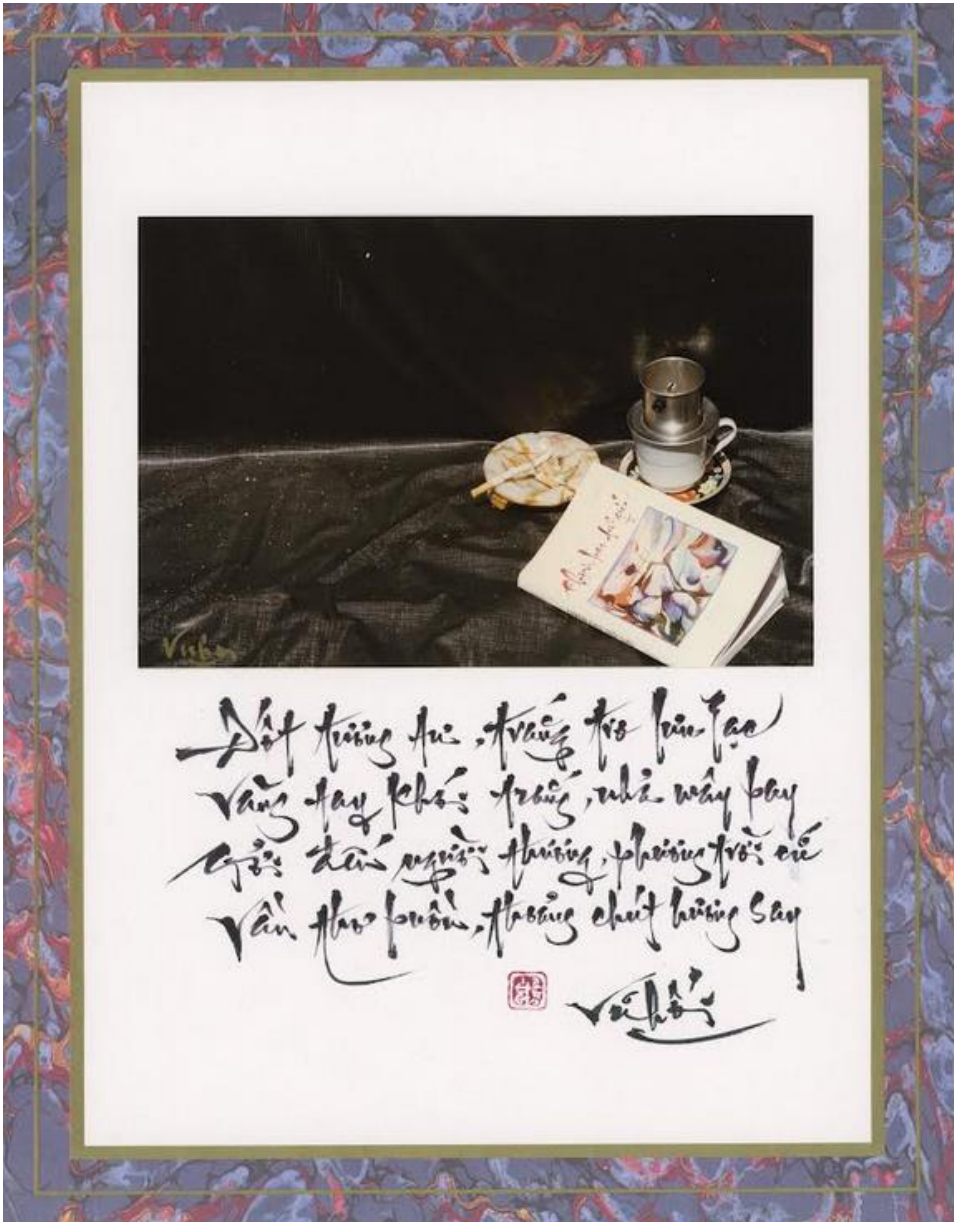 Đốt tương tư, trắng tro lưu lạc
Vàng tay khói trắng, nhả mây bay
Gởi đến người thương, phương trời cũ
Vần thơ buồn, thoảng chút hương say
Vũ Hối